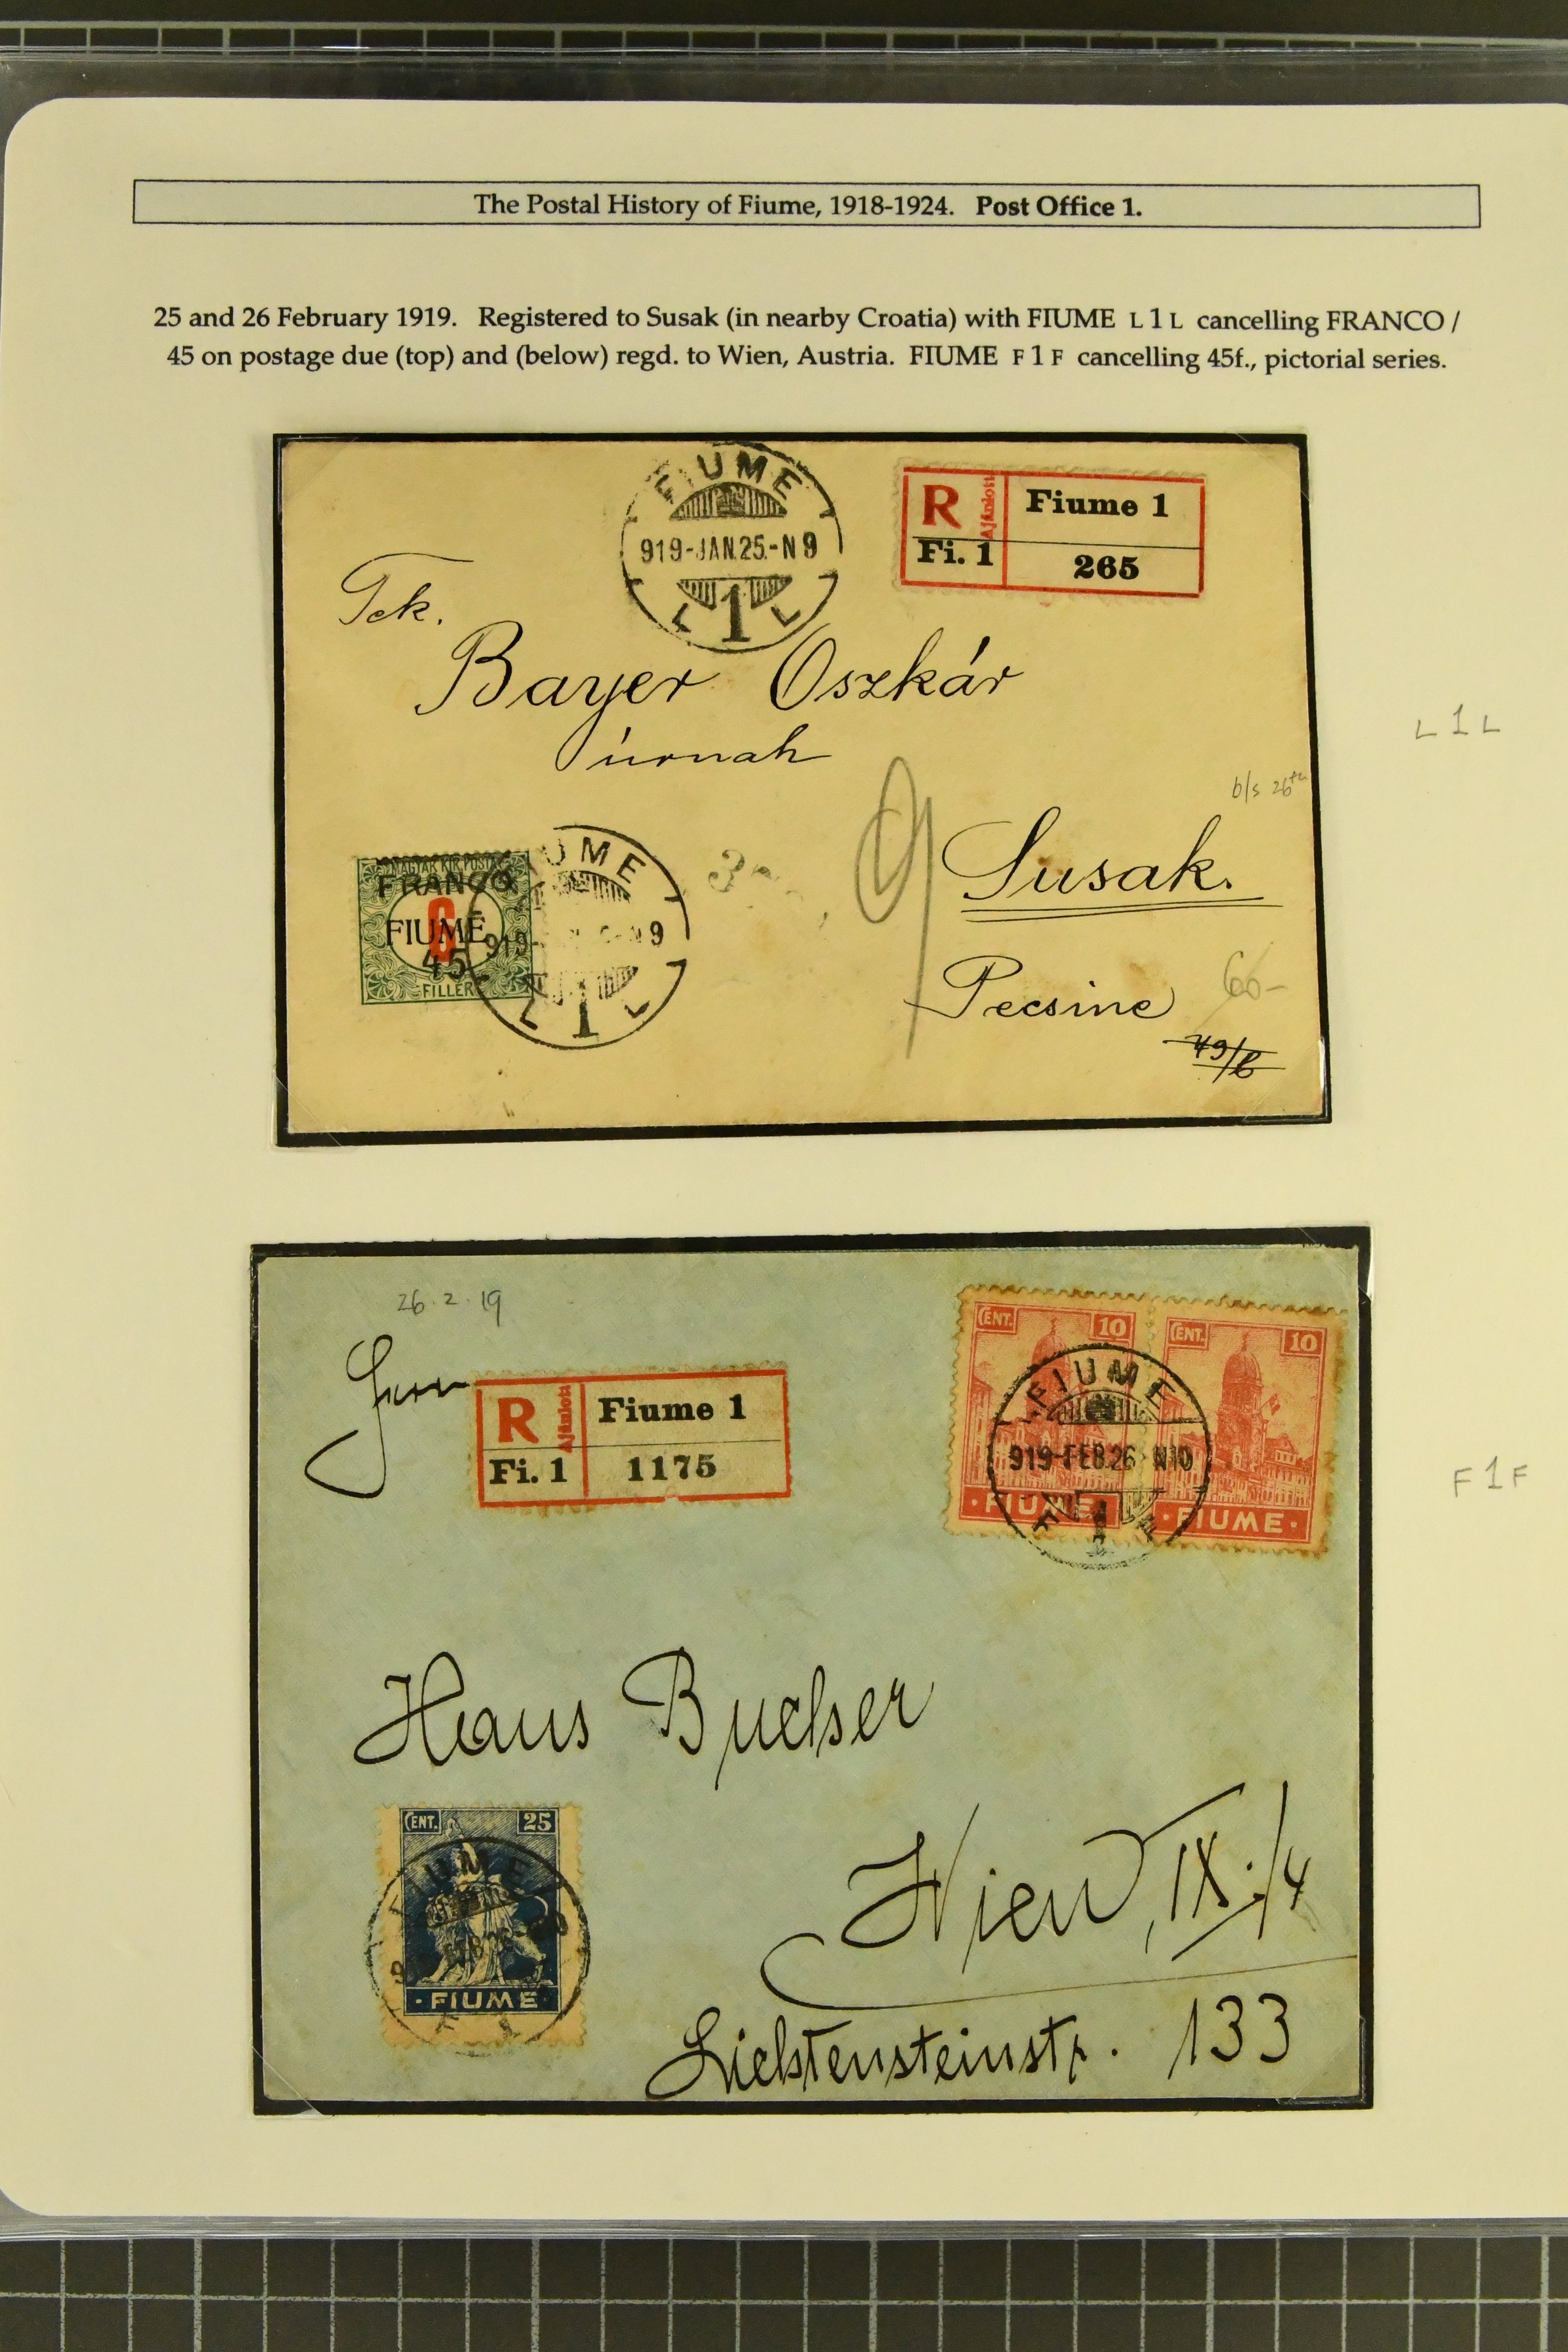 The Postal History of Fiume, 1918-1924. Post Office 1.
25 and 26 February 1919. Registered to Susak (in nearby Croatia) with FIUME L 1 L cancelling FRANCO /
45 on postage due (top) and (below) regd. to Wien, Austria. FIUME F 1 F cancelling 45f., pictorial series.
FIUME
919-JAN.25.-N9
L 1 L
R Ajánlott Fiume 1
Fi. 1 265
Tek.
Bayer Oszkár
úrnak
L 1 L
b/s 26th
Susak.
Pecsine
60-
49/b
MAGYAR KIR. POSTA
FRANCO
6
FIUME
45
FILLER
UME
919- N9
L 1 L
26.2.19
Herrn
R Ajánlott Fiume 1
Fi. 1 1175
CENT. 10
FIUME
CENT. 10
FIUME
FIUME
919-FEB.26 N10
F 1 F
F 1 F
Hans Buchser
Wien, IX./4
Liechtensteinstr. 133
CENT. 25
FIUME
FIUME
F 1